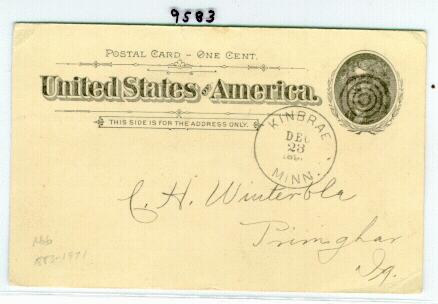 9583
POSTAL CARD – ONE CENT.
United States of America.
THIS SIDE IS FOR THE ADDRESS ONLY.
KINBRAE
DEC
23
MINN.
C. H. Winterble
Primghar
Ia.
1883-1971